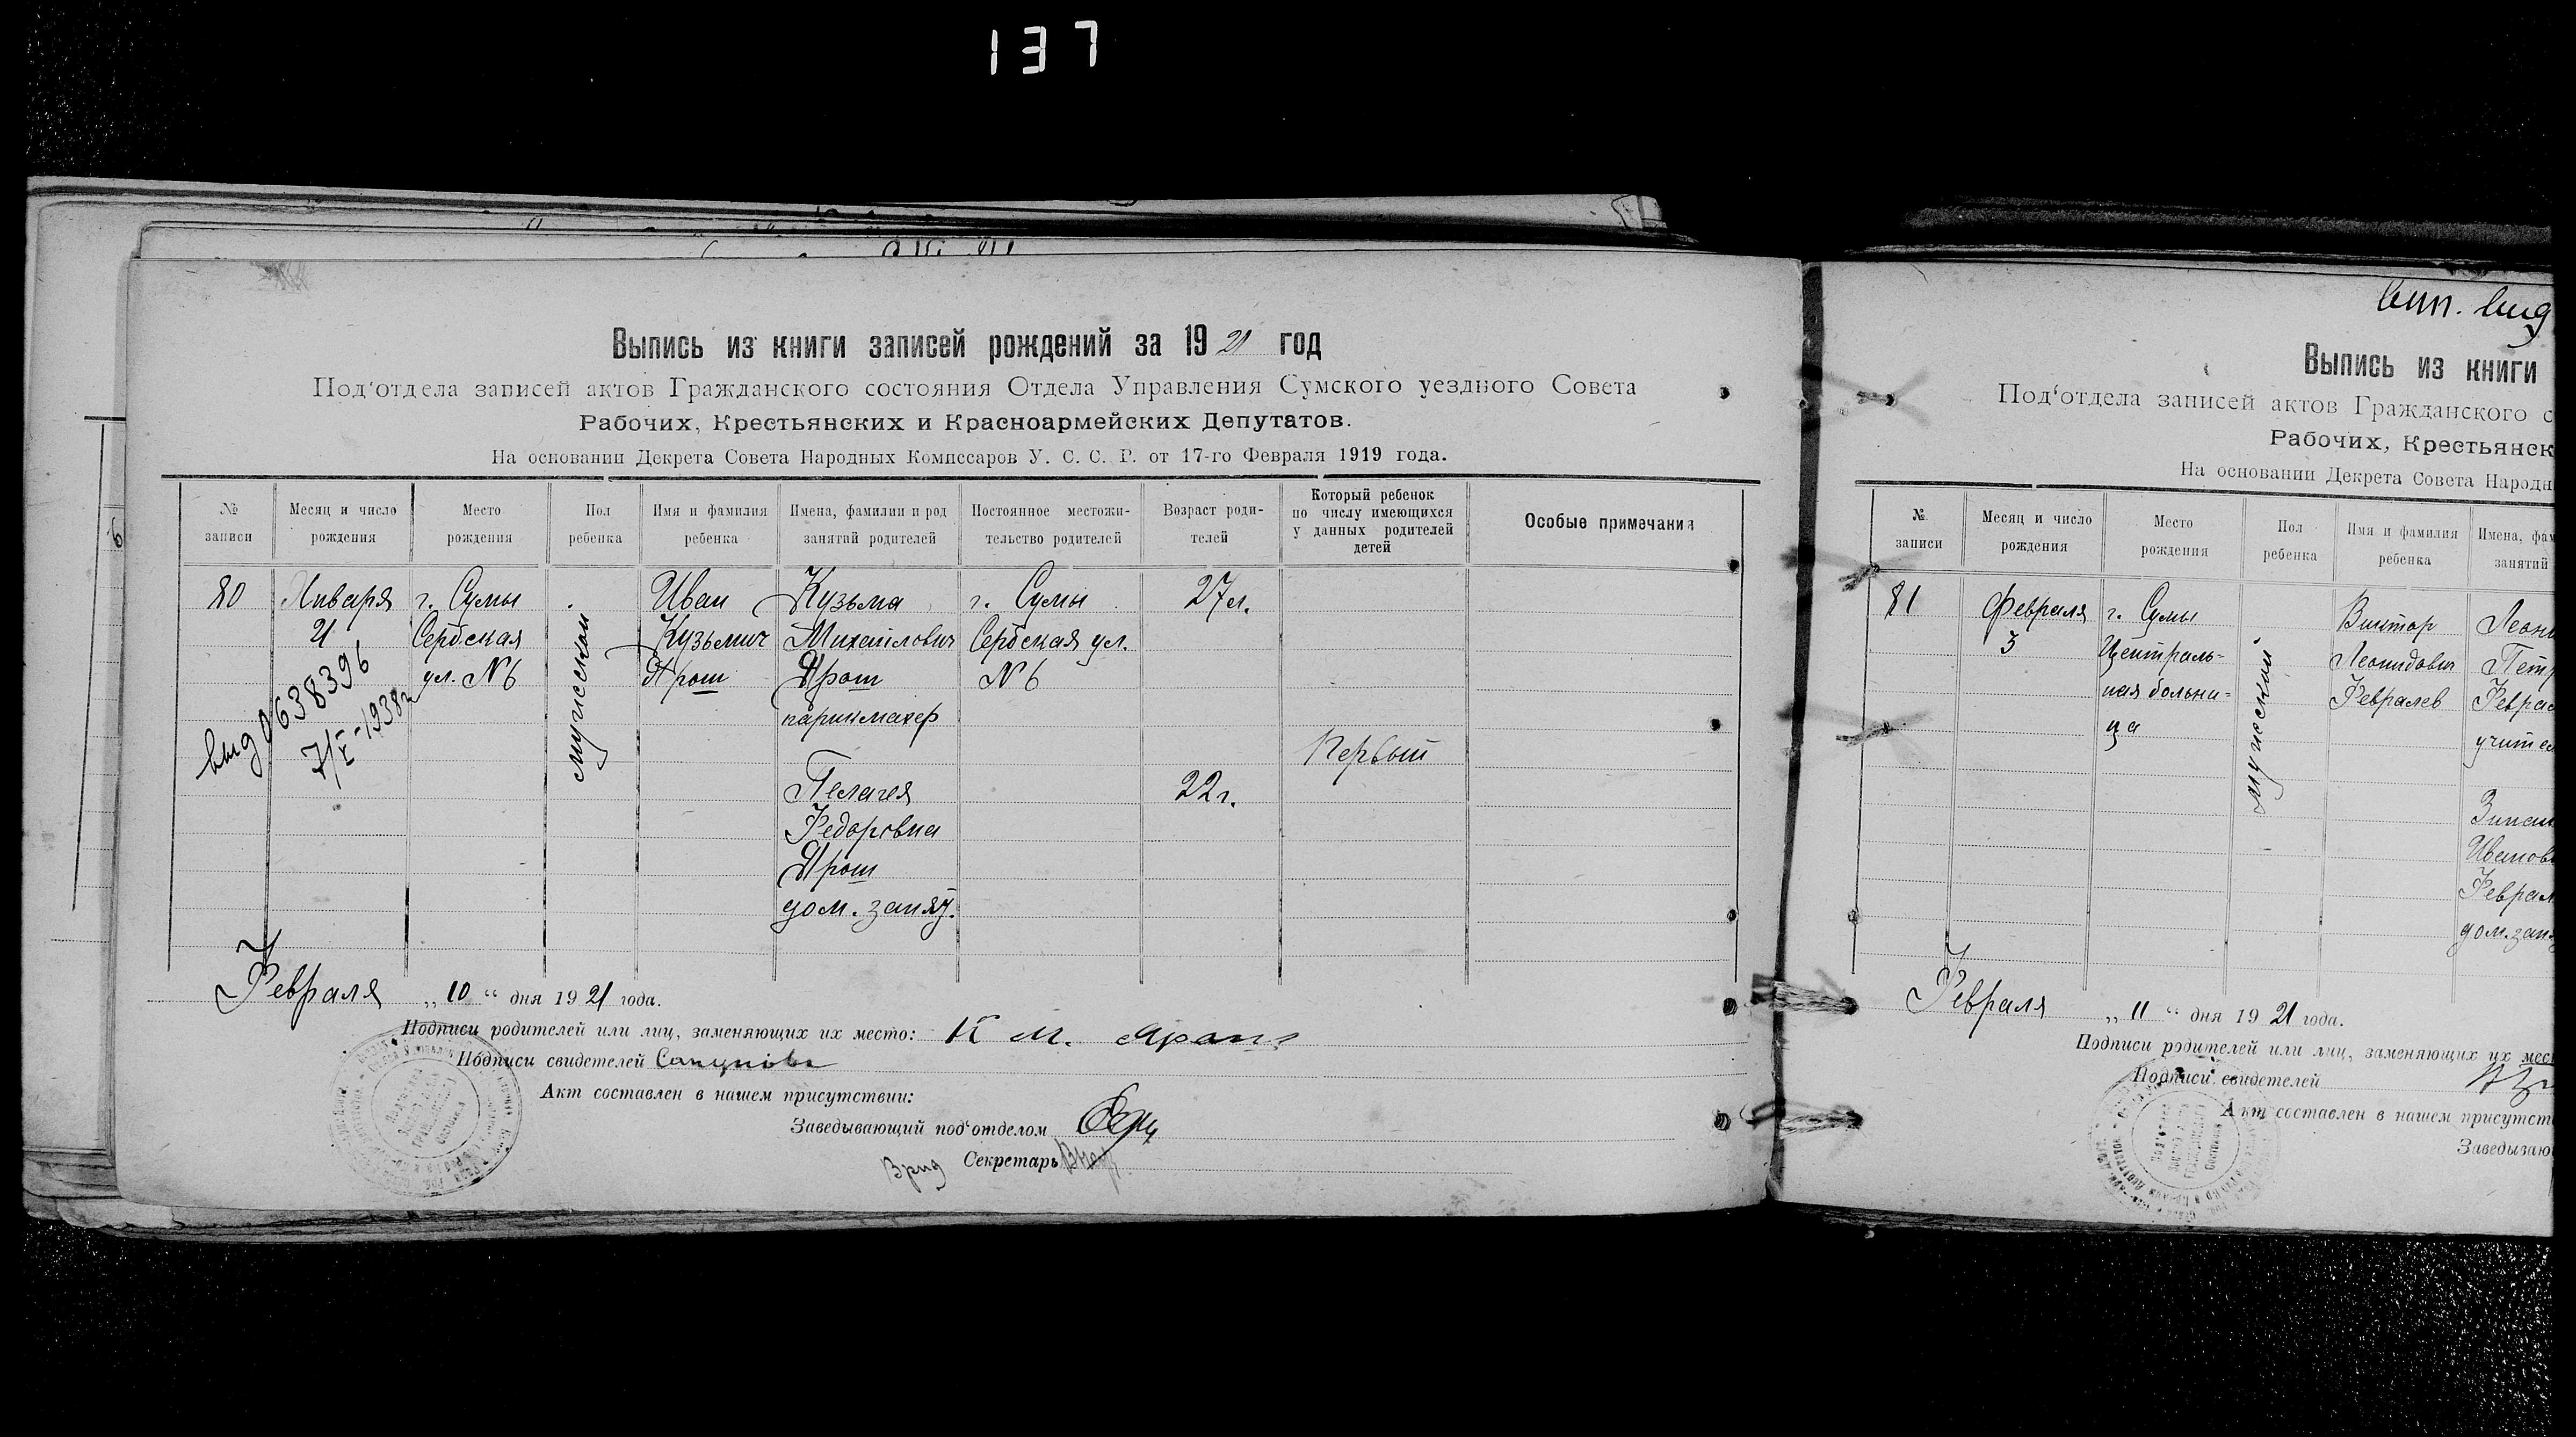 137
Выпись из книги записей рождений за 1921 год
Под‘отдела записей актов Гражданского состояния Отдела Управления Сумского уездного Совета
Рабочих, Крестьянских и Красноармейских Депутатов.
На основании Декрета Совета Народных Комиссаров У. С. С. Р. от 17-го Февраля 1919 года.
№ записи
Месяц и число рождения
Место рождения
Пол ребенка
Имя и фамилия ребенка
Имена, фамилии и род занятий родителей
Постоянное местожительство родителей
Возраст родителей
Который ребенок по числу имеющихся у данных родителей детей
Особые примечания
80
Января
21
г. Сумы
Сербская
ул. N 6
мужской
Иван
Кузьмич
Ярош
Кузьма
Михайлович
Ярош
парикмахер
Пелагея
Федоровна
Ярош
дом. заняу.
г. Сумы
Сербская ул.
N 6
27 л.
22 г.
Первый
выд 0638396
7/X-1938г
Февраля „10“ дня 1921 года.
Подписи родителей или лиц, заменяющих их место: К М. Ярош
Подписи свидетелей
Акт составлен в нашем присутствии:
Заведывающий под‘отделом
Врид Секретарь
Выпись из книги
Под‘отдела записей актов Гражданского с
Рабочих, Крестьянск
На основании Декрета Совета Народн
№ записи
Месяц и число рождения
Место рождения
Пол ребенка
Имя и фамилия ребенка
Имена, фам
занятий
81
Февраля
3
г. Сумы
Централь-
ная больни-
ца
мужской
Виктор
Леонидович
Февралев
Леон
Петр
Феврал
учител
Зинаи
Иванов
Феврал
дом. зан
Февраля „11“ дня 1921 года.
Подписи родителей или лиц, заменяющих их мес
Подписи свидетелей
Акт составлен в нашем присутст
Заведываю